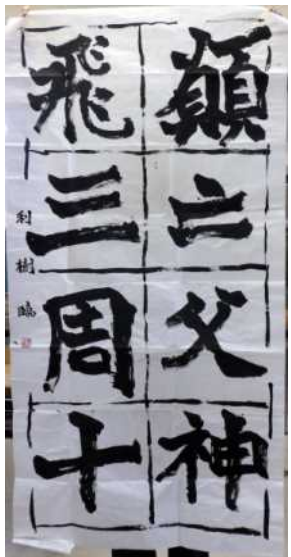 願亡父神
飛三周十
利樹臨